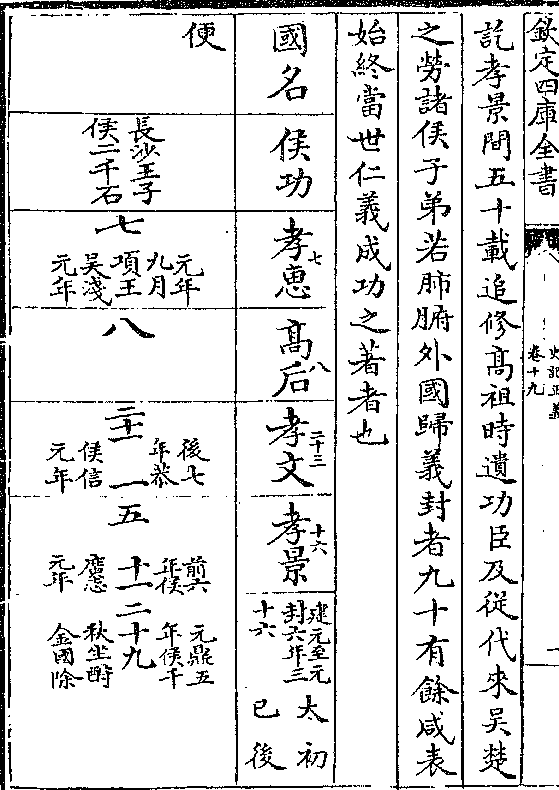 欽定四庫全書
史記正義
卷十九
訖孝景間五十載追修髙祖時遺功臣及從代來吳楚
之勞諸侯子弟若肺腑外國歸義封者九十有餘咸表
始終當世仁義成功之著者也
國名
侯功
孝惠
七
髙后
八
孝文
二十三
孝景
十六
建元至元
封六年三
十六
太初
已後
便
長沙王子
侯二千石
七
元年
九月
項王
吳淺
元年
八
二十二
後七
年恭
侯信
元年
一
五
前六
年侯
廣志
元年
十一
二十九
元鼎五
年侯千
秋坐酎
金國除